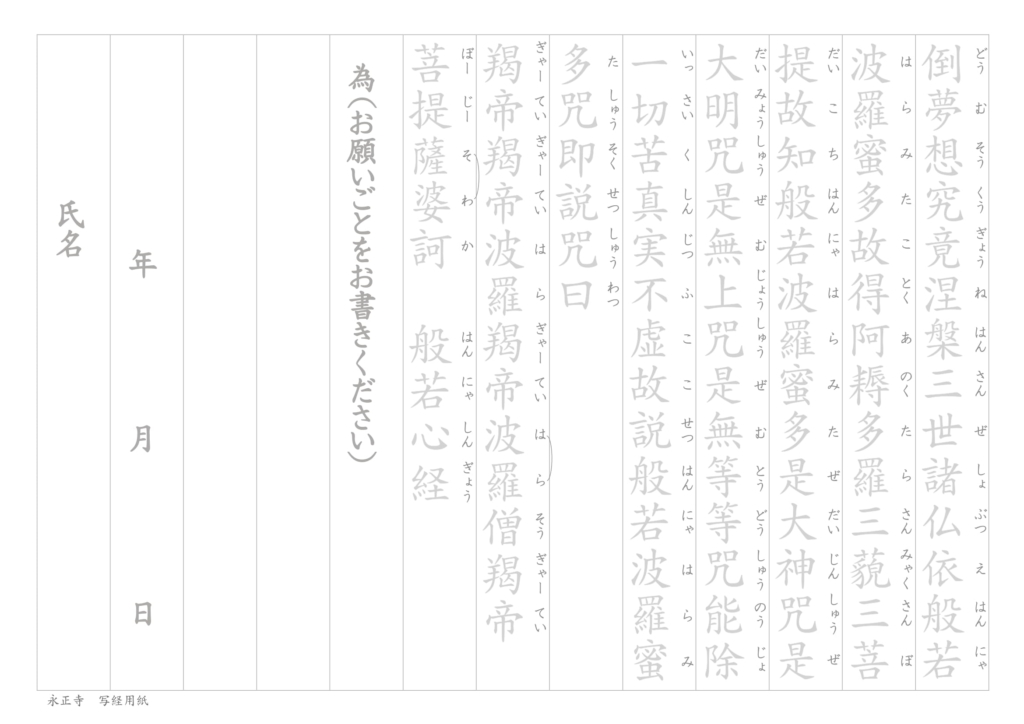 どう む そう くう ぎょう ね はん さん ぜ しょ ぶつ え はん にゃ
倒夢想究竟涅槃三世諸仏依般若
は ら み た こ とく あ のく た ら さん みゃく さん ぼ
波羅蜜多故得阿耨多羅三藐三菩
だい こ ち はん にゃ は ら み た ぜ だい じん しゅう ぜ
提故知般若波羅蜜多是大神咒是
だい みょう しゅう ぜ む じょう しゅう ぜ む とう どう しゅう のう じょ
大明咒是無上咒是無等等咒能除
いっ さい く しん じつ ふ こ こ せつ はん にゃ は ら み
一切苦真実不虚故説般若波羅蜜
た しゅう そく せつ しゅう わつ
多咒即説咒曰
ぎゃー てい ぎゃー てい は ら ぎゃー てい は ら そう ぎゃー てい
羯帝羯帝波羅羯帝波羅僧羯帝
ぼー じー そ わ か はん にゃ しん ぎょう
菩提薩婆訶 般若心経
為(お願いごとをお書きください)
年 月 日
氏名
永正寺 写経用紙